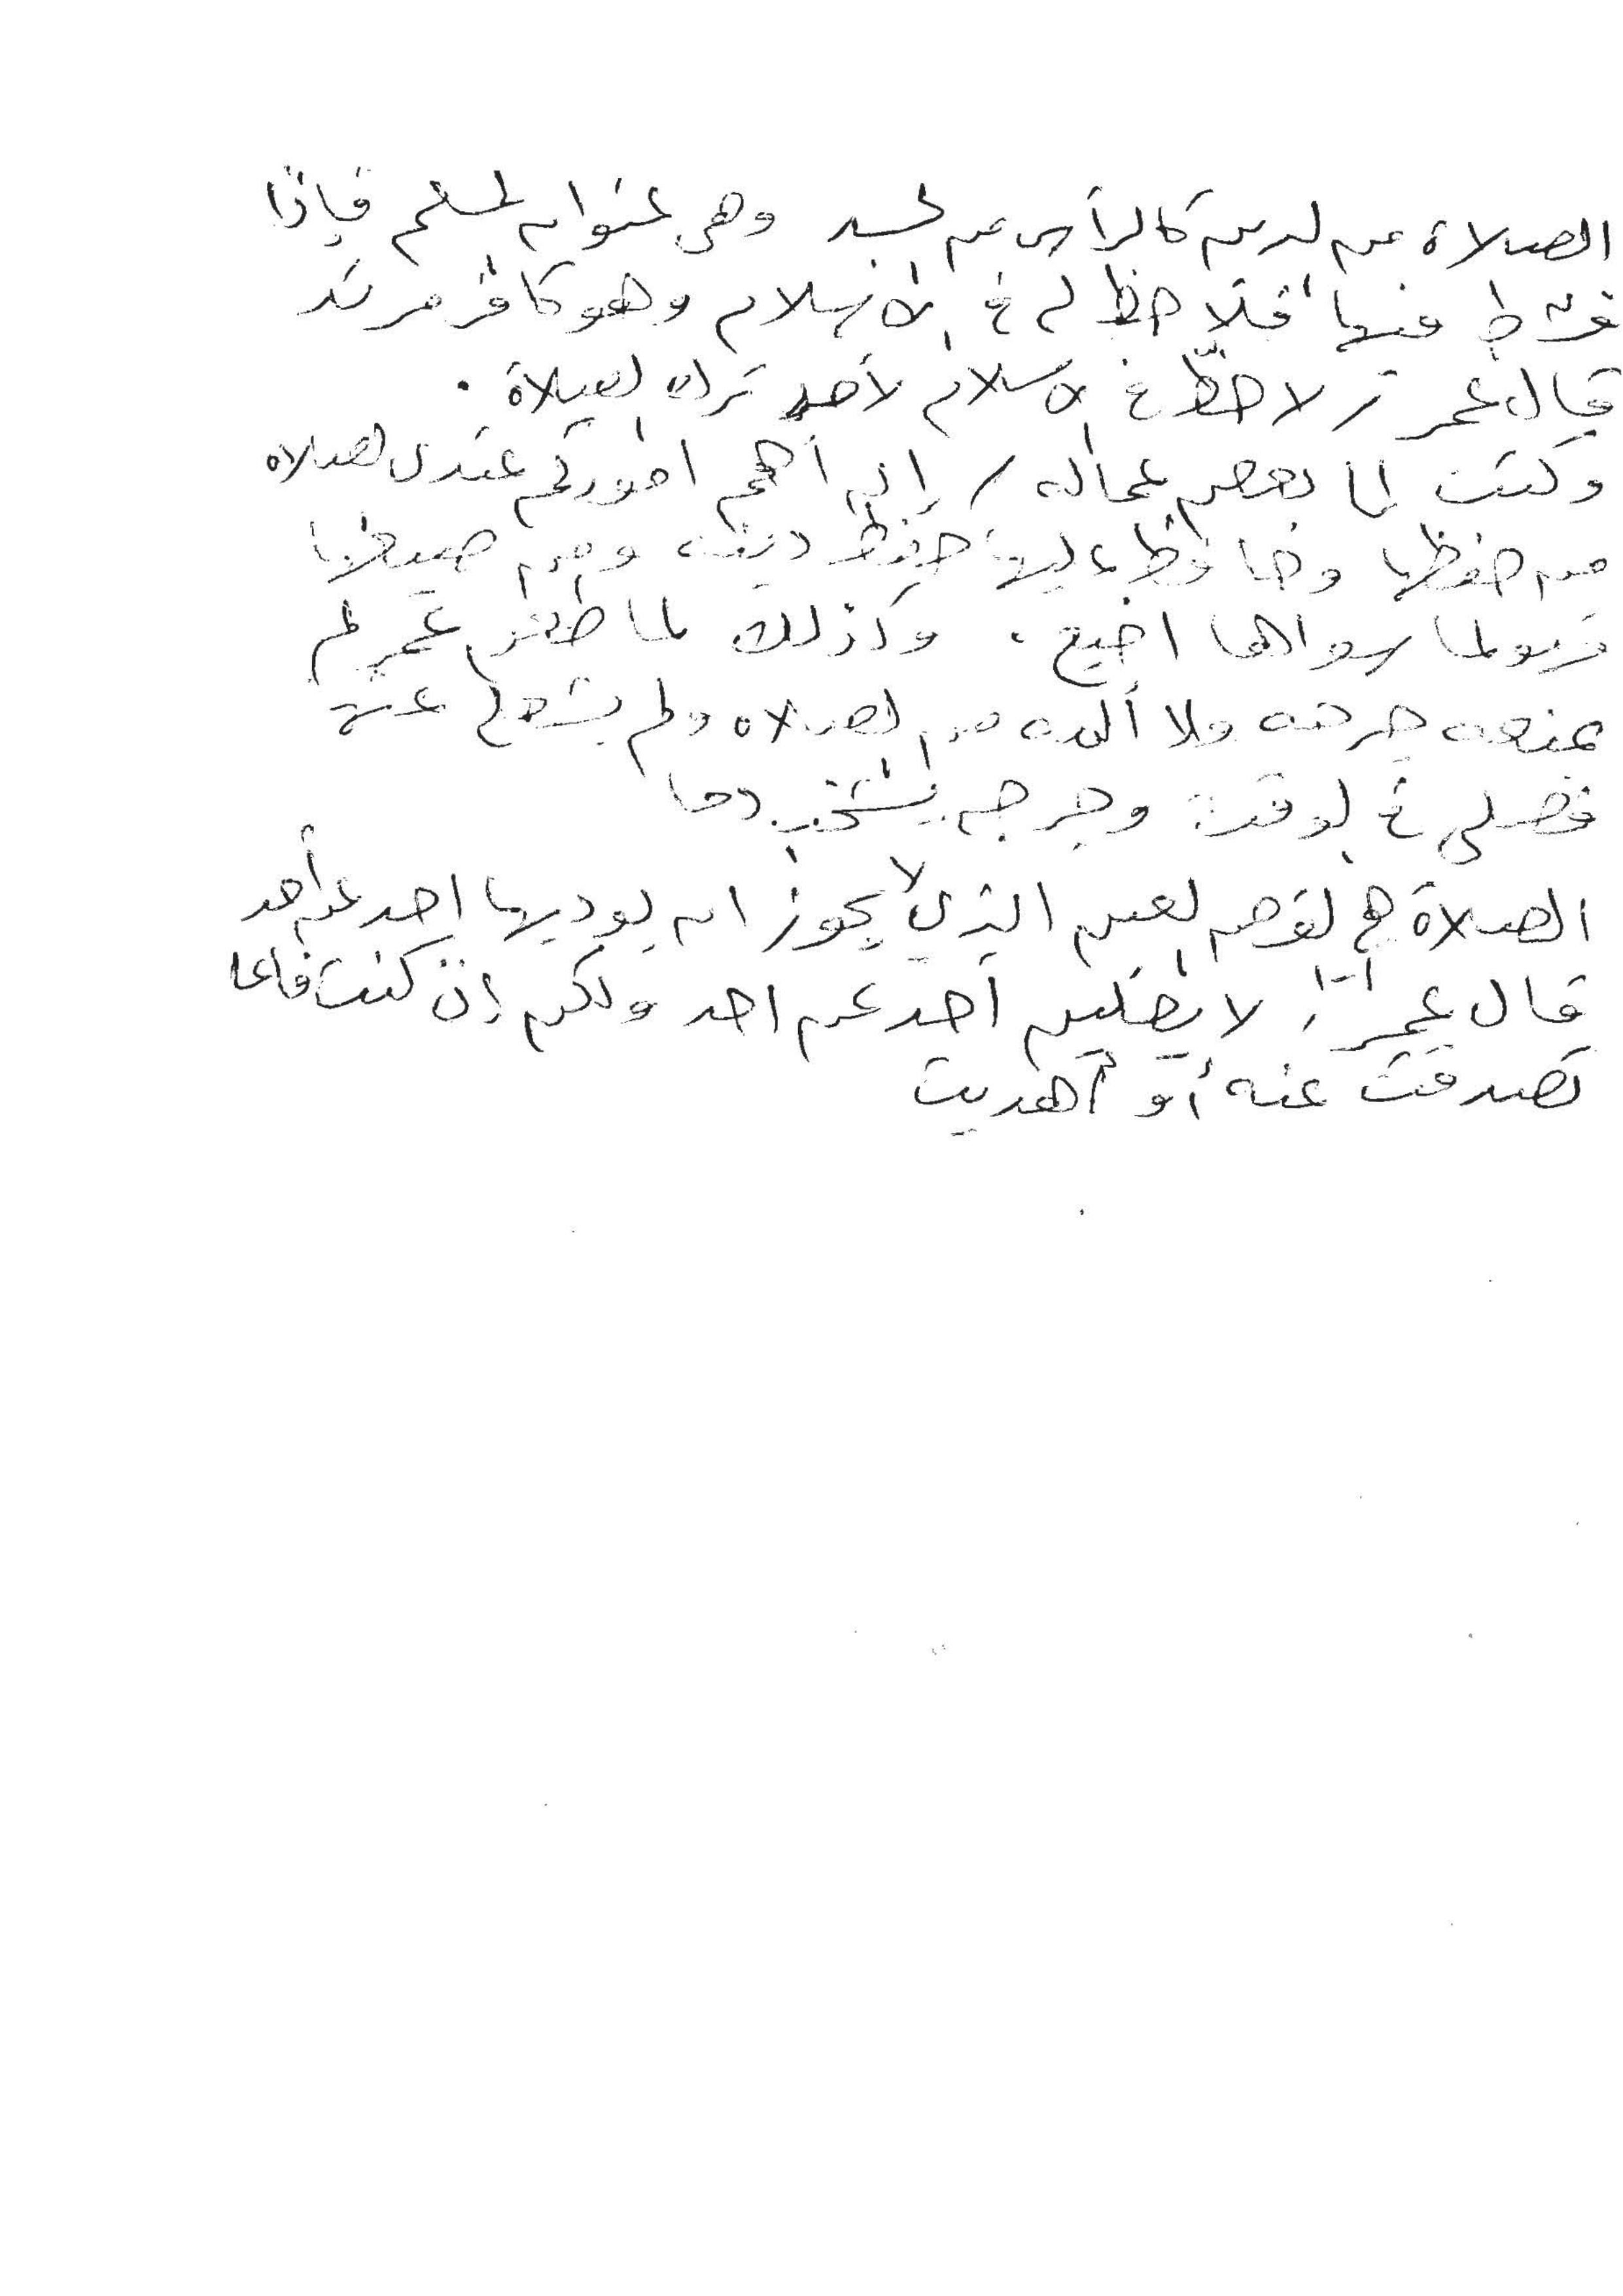 الصلاة من الدين كالرأس من الجسد وهي عنوان المسلم فإذا
فرط فيها فلا حظ له في الإسلام وهو كافر مرتد
قال عمر / لا حظّ في الاسلام لأحد ترك الصلاة .
وكتب إلى بعض عماله / إن أهم اموركم عندى الصلاه
من حفظها وحافظ عليها حفظ دينه ومن ضيعها
فهو لما سواها اضيع . وكذلك لما طعن عمر لم
يمنعه جرحه ولا ألمه من الصلاه ولم يشغله عنها
فصلى في الوقت وجرحه يشخب دما
الصلاة هي الفرض العين الذي لا يجوز ان يوديها احد عن أحد
قال عمر / لا يصلين أحد عن احد ولكن إن كنت فاعلا
تصدقت عنه أو أهديت